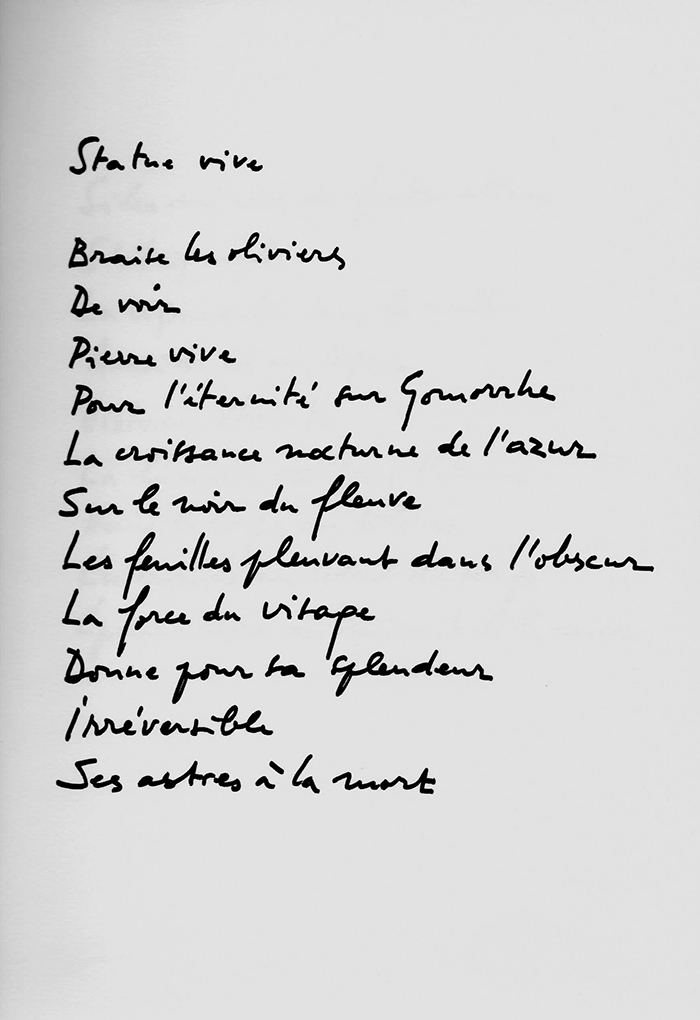 Statue vive
Braise les oliviers
De voir
Pierre vive
Pour l'éternité sur Gomorrhe
La croissance nocturne de l'azur
Sur le noir du fleuve
Les feuilles pleuvant dans l'obscur
La force du visage
Donne pour sa splendeur
Irréversible
Ses astres à la mort